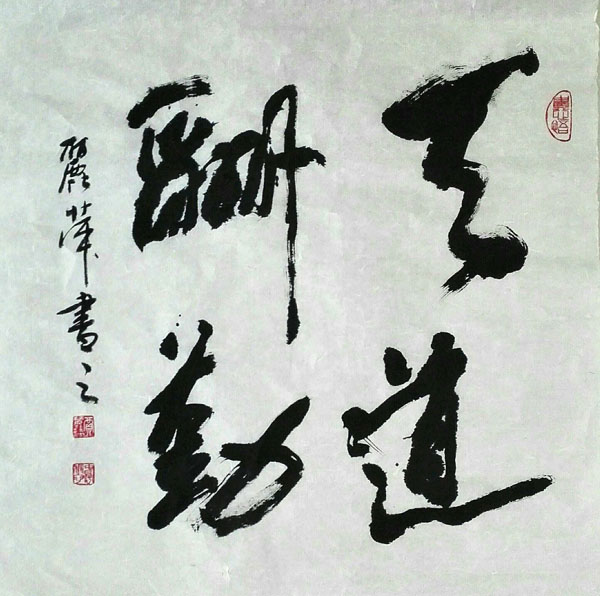 天道
酬勤
麗萍書之